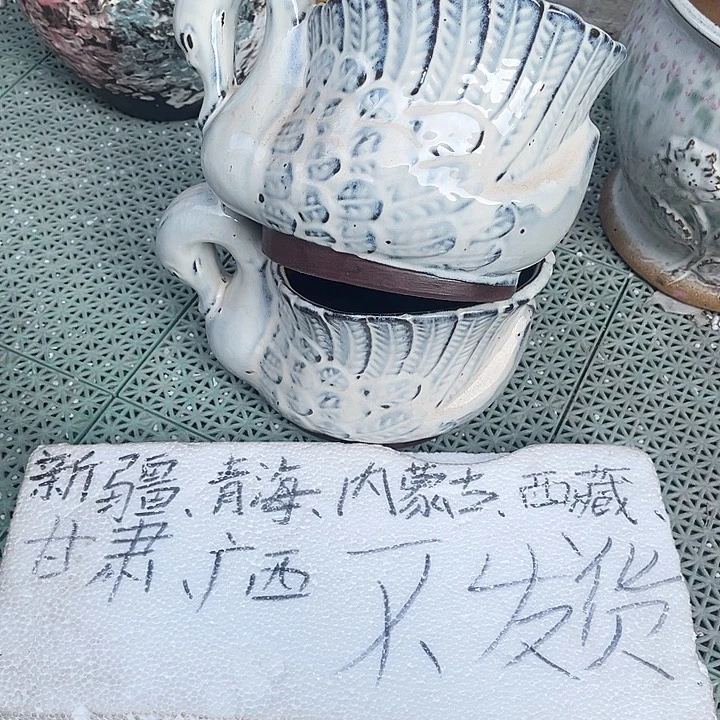 新疆、青海、内蒙古、西藏、
甘肃、广西 不发货